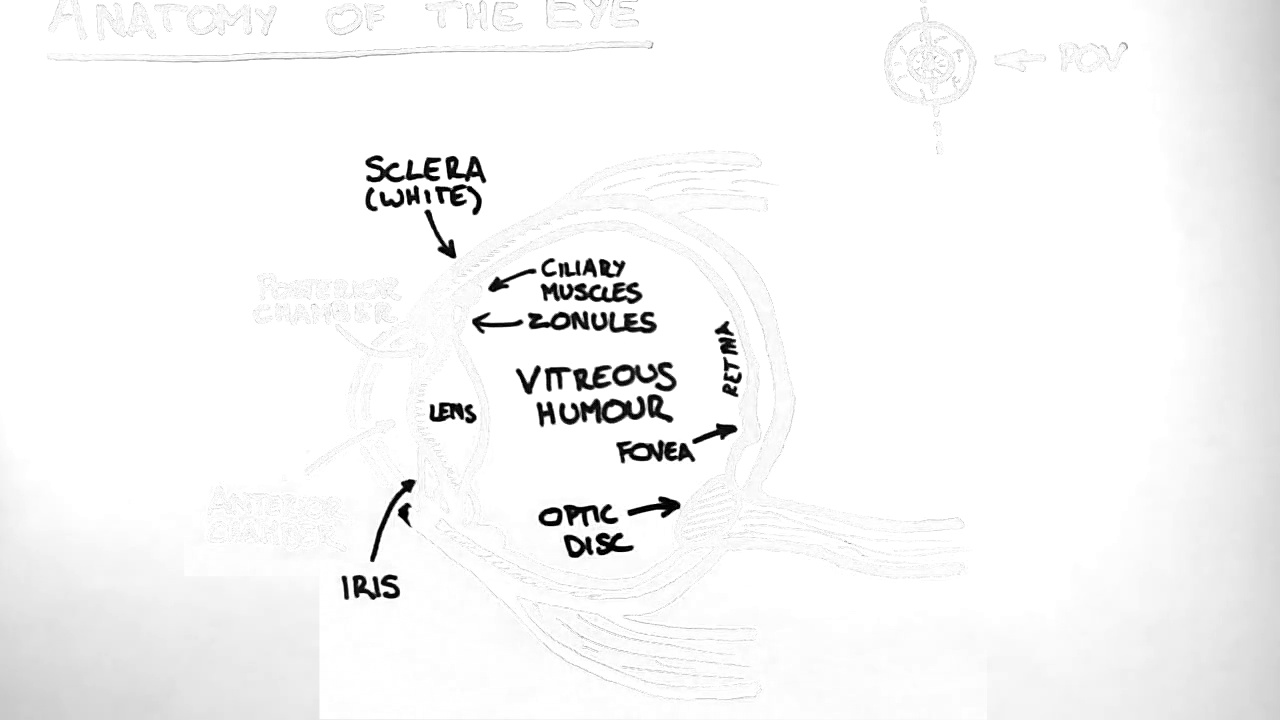 ANATOMY OF THE EYE
POV
SCLERA
(WHITE)
CILIARY
MUSCLES
POSTERIOR
CHAMBER
ZONULES
RETINA
VITREOUS
HUMOUR
LENS
FOVEA
ANTERIOR
OPTIC
DISC
IRIS